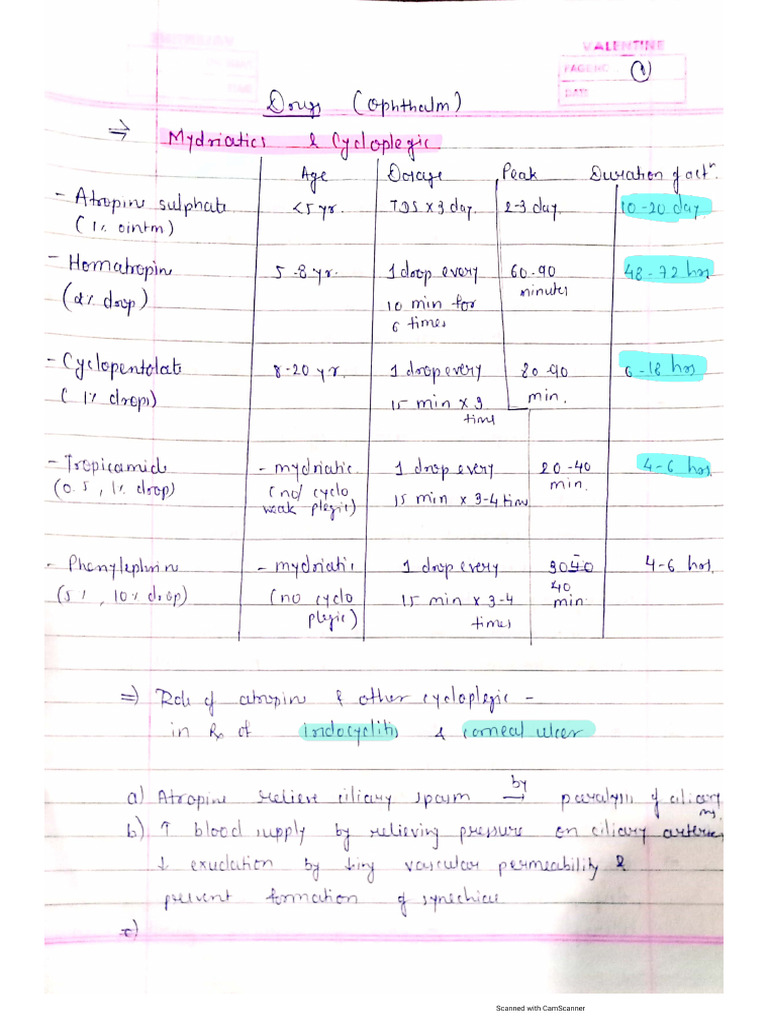 VALENTINE
PAGE NO. 1
DATE
Drugs (ophthalm)
⇒ Mydriatics & Cycloplegic
Age Dosage Peak Duration of actⁿ.
- Atropin sulphate <5 yr. TDS x 3 day. 2-3 day. 10-20 day
(1% ointm)
- Homatropin 5-8 yr. 1 drop every 60-90 48-72 hrs
(2% drop) 10 min for minutes
6 times
- Cyclopentolate 8-20 yr. 1 drop every 20-90 6-18 hrs
(1% drops) 15 min x 3 min.
time
- Tropicamid - mydriatic 1 drop every 20-40 4-6 hrs.
(0.5, 1% drop) (no/ cyclo 15 min x 3-4 time min.
weak plegic)
- Phenylephrin - mydriatic 1 drop every 30 4-6 hrs.
(5%, 10% drop) (no cyclo 15 min x 3-4 40
plegic) times min.
⇒ Role of atropine & other cycloplegic -
in Rx of iridocyclitis & corneal ulcer
a) Atropine relieve ciliary spasm by → paralysis of ciliary ms.
b) ↑ blood supply by relieving pressure on ciliary arteries
↓ exudation by ↓ing vascular permeability &
prevent formation of synechiae
c)
Scanned with CamScanner